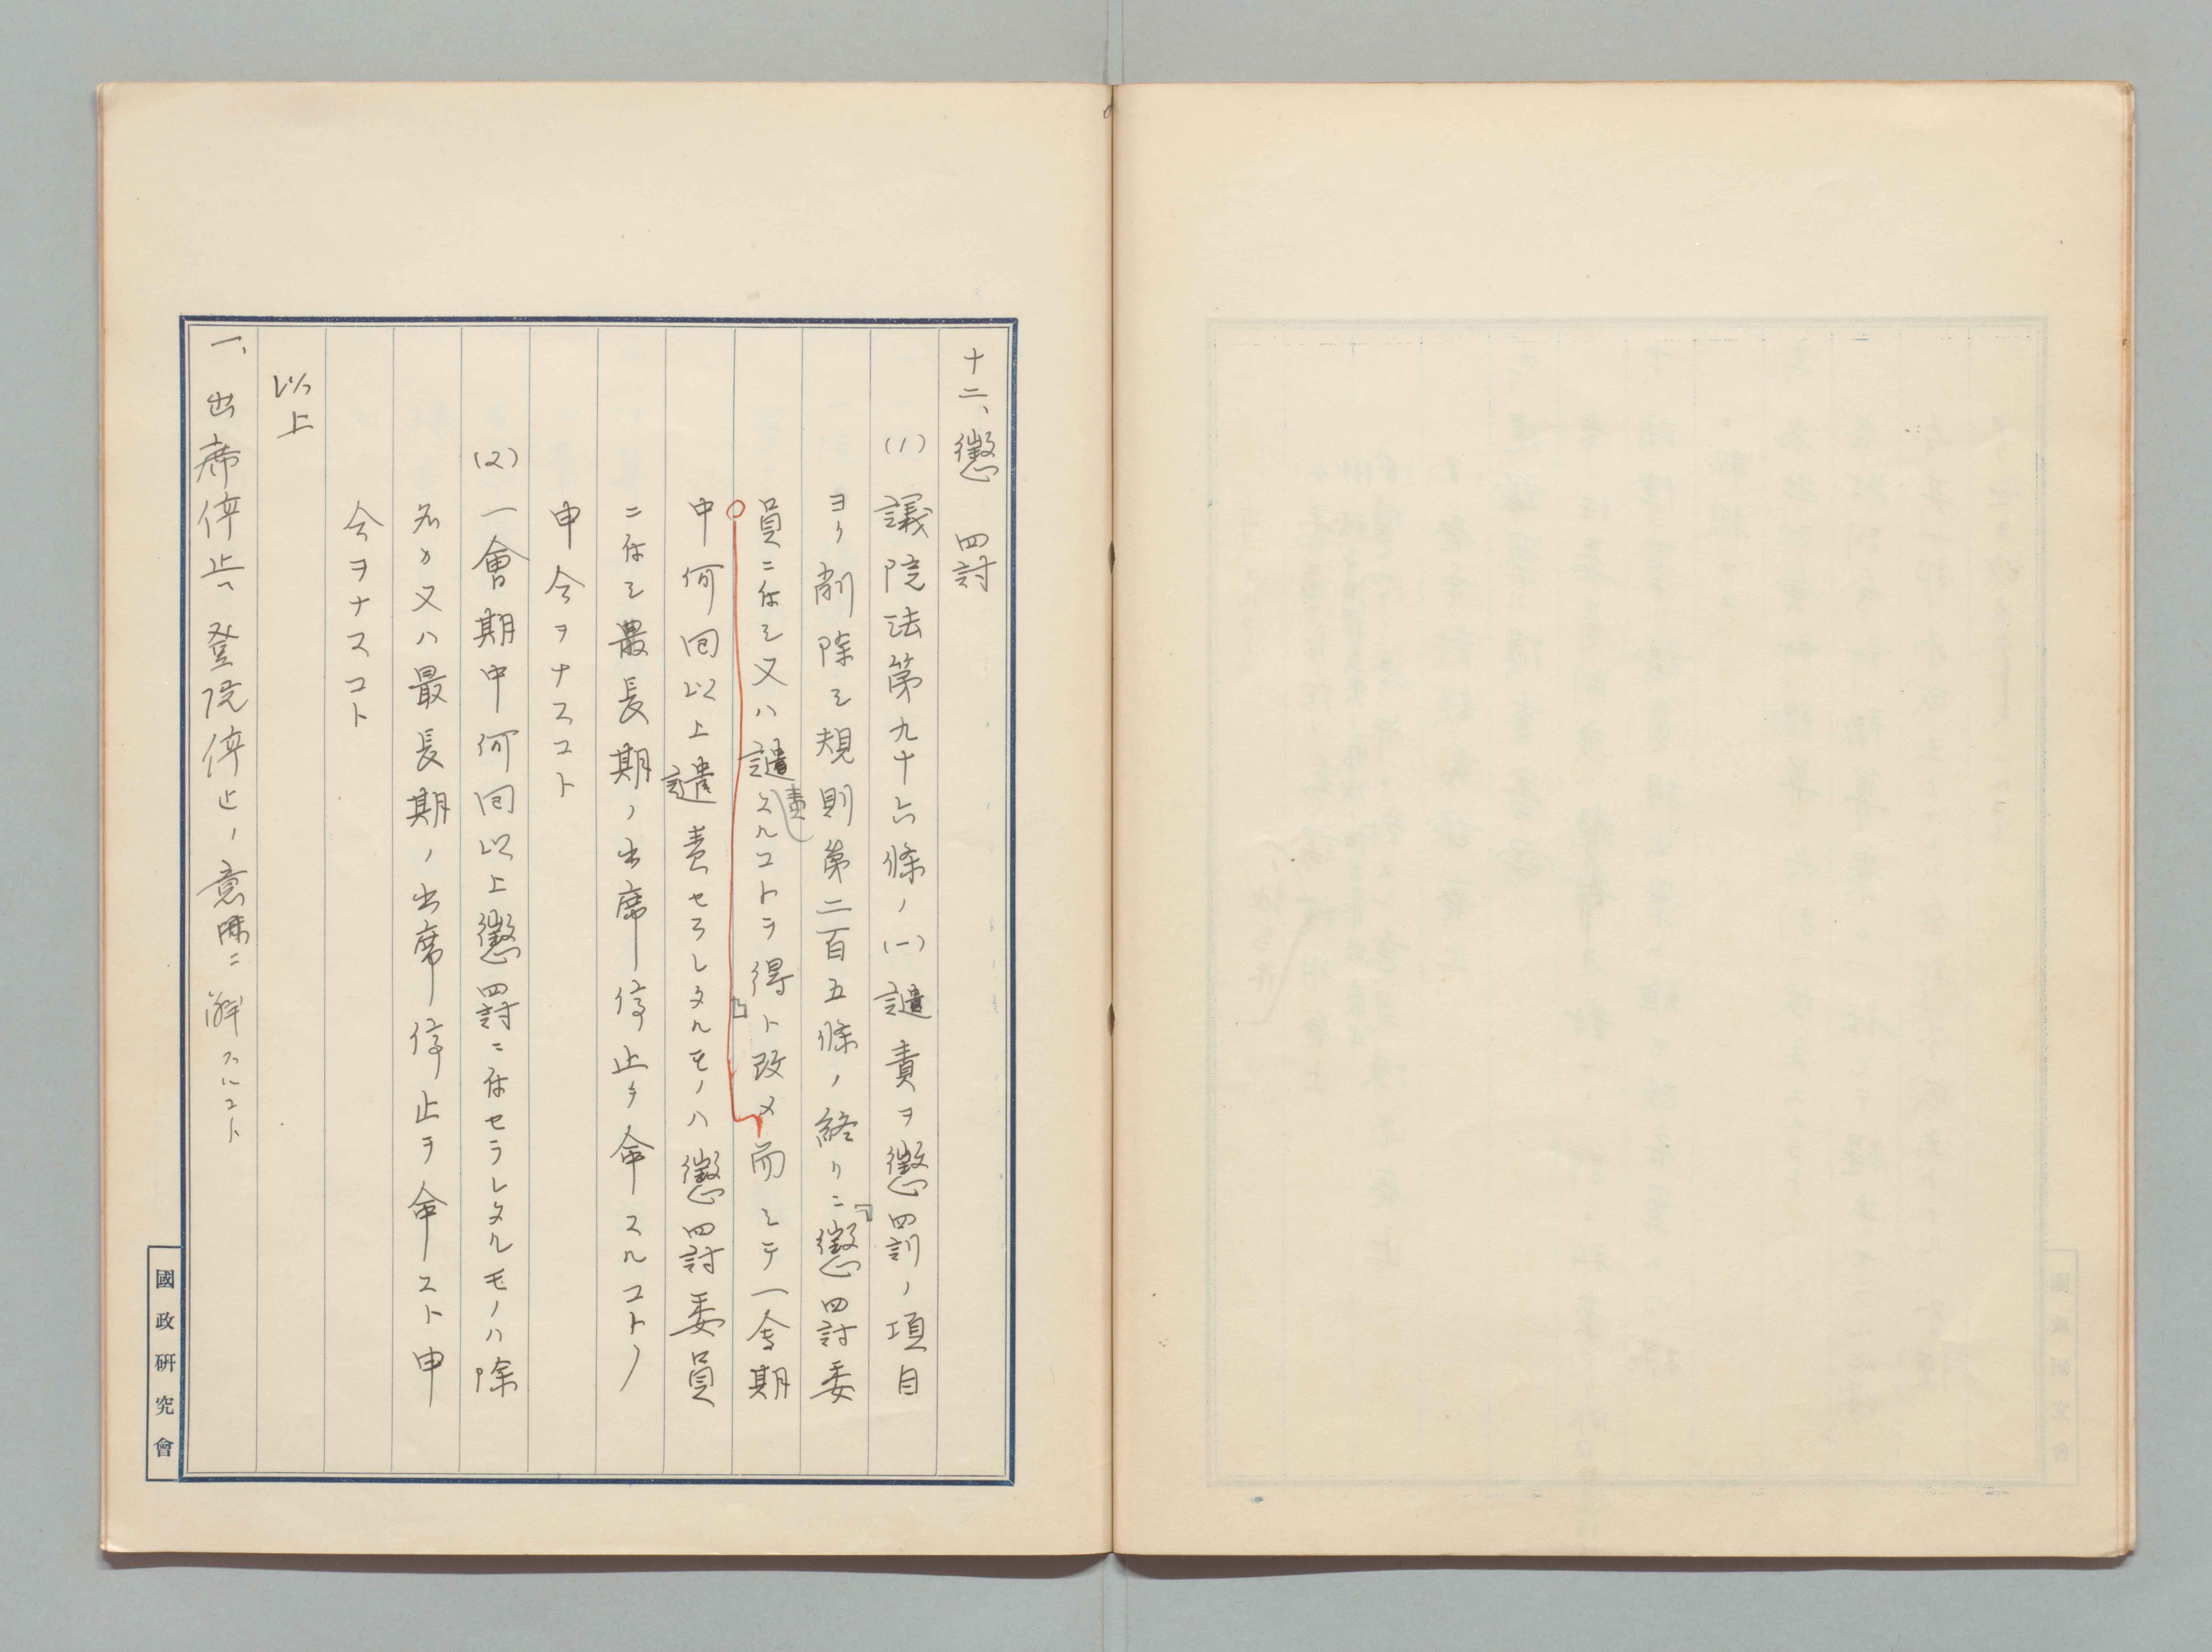 十二、懲罰
(1) 議院法第九十六條ノ(一)譴責ヲ懲罰ノ項目
ヨリ削除シ規則第二百五條ノ終リニ『懲罰委
員ニ付シ又ハ譴責スルコトヲ得』ト改メ而シテ一会期
中何回以上譴責セラレタルモノハ懲罰委員
ニ付シ最長期ノ出席停止ヲ命スルコトノ
申合ヲナスコト
(2) 一會期中何回以上懲罰ニ付セラレタルモノハ除
名カ又ハ最長期ノ出席停止ヲ命スト申
合ヲナスコト
以上
一、出席停止ハ登院停止ノ意味ニ解スルコト
國政研究會